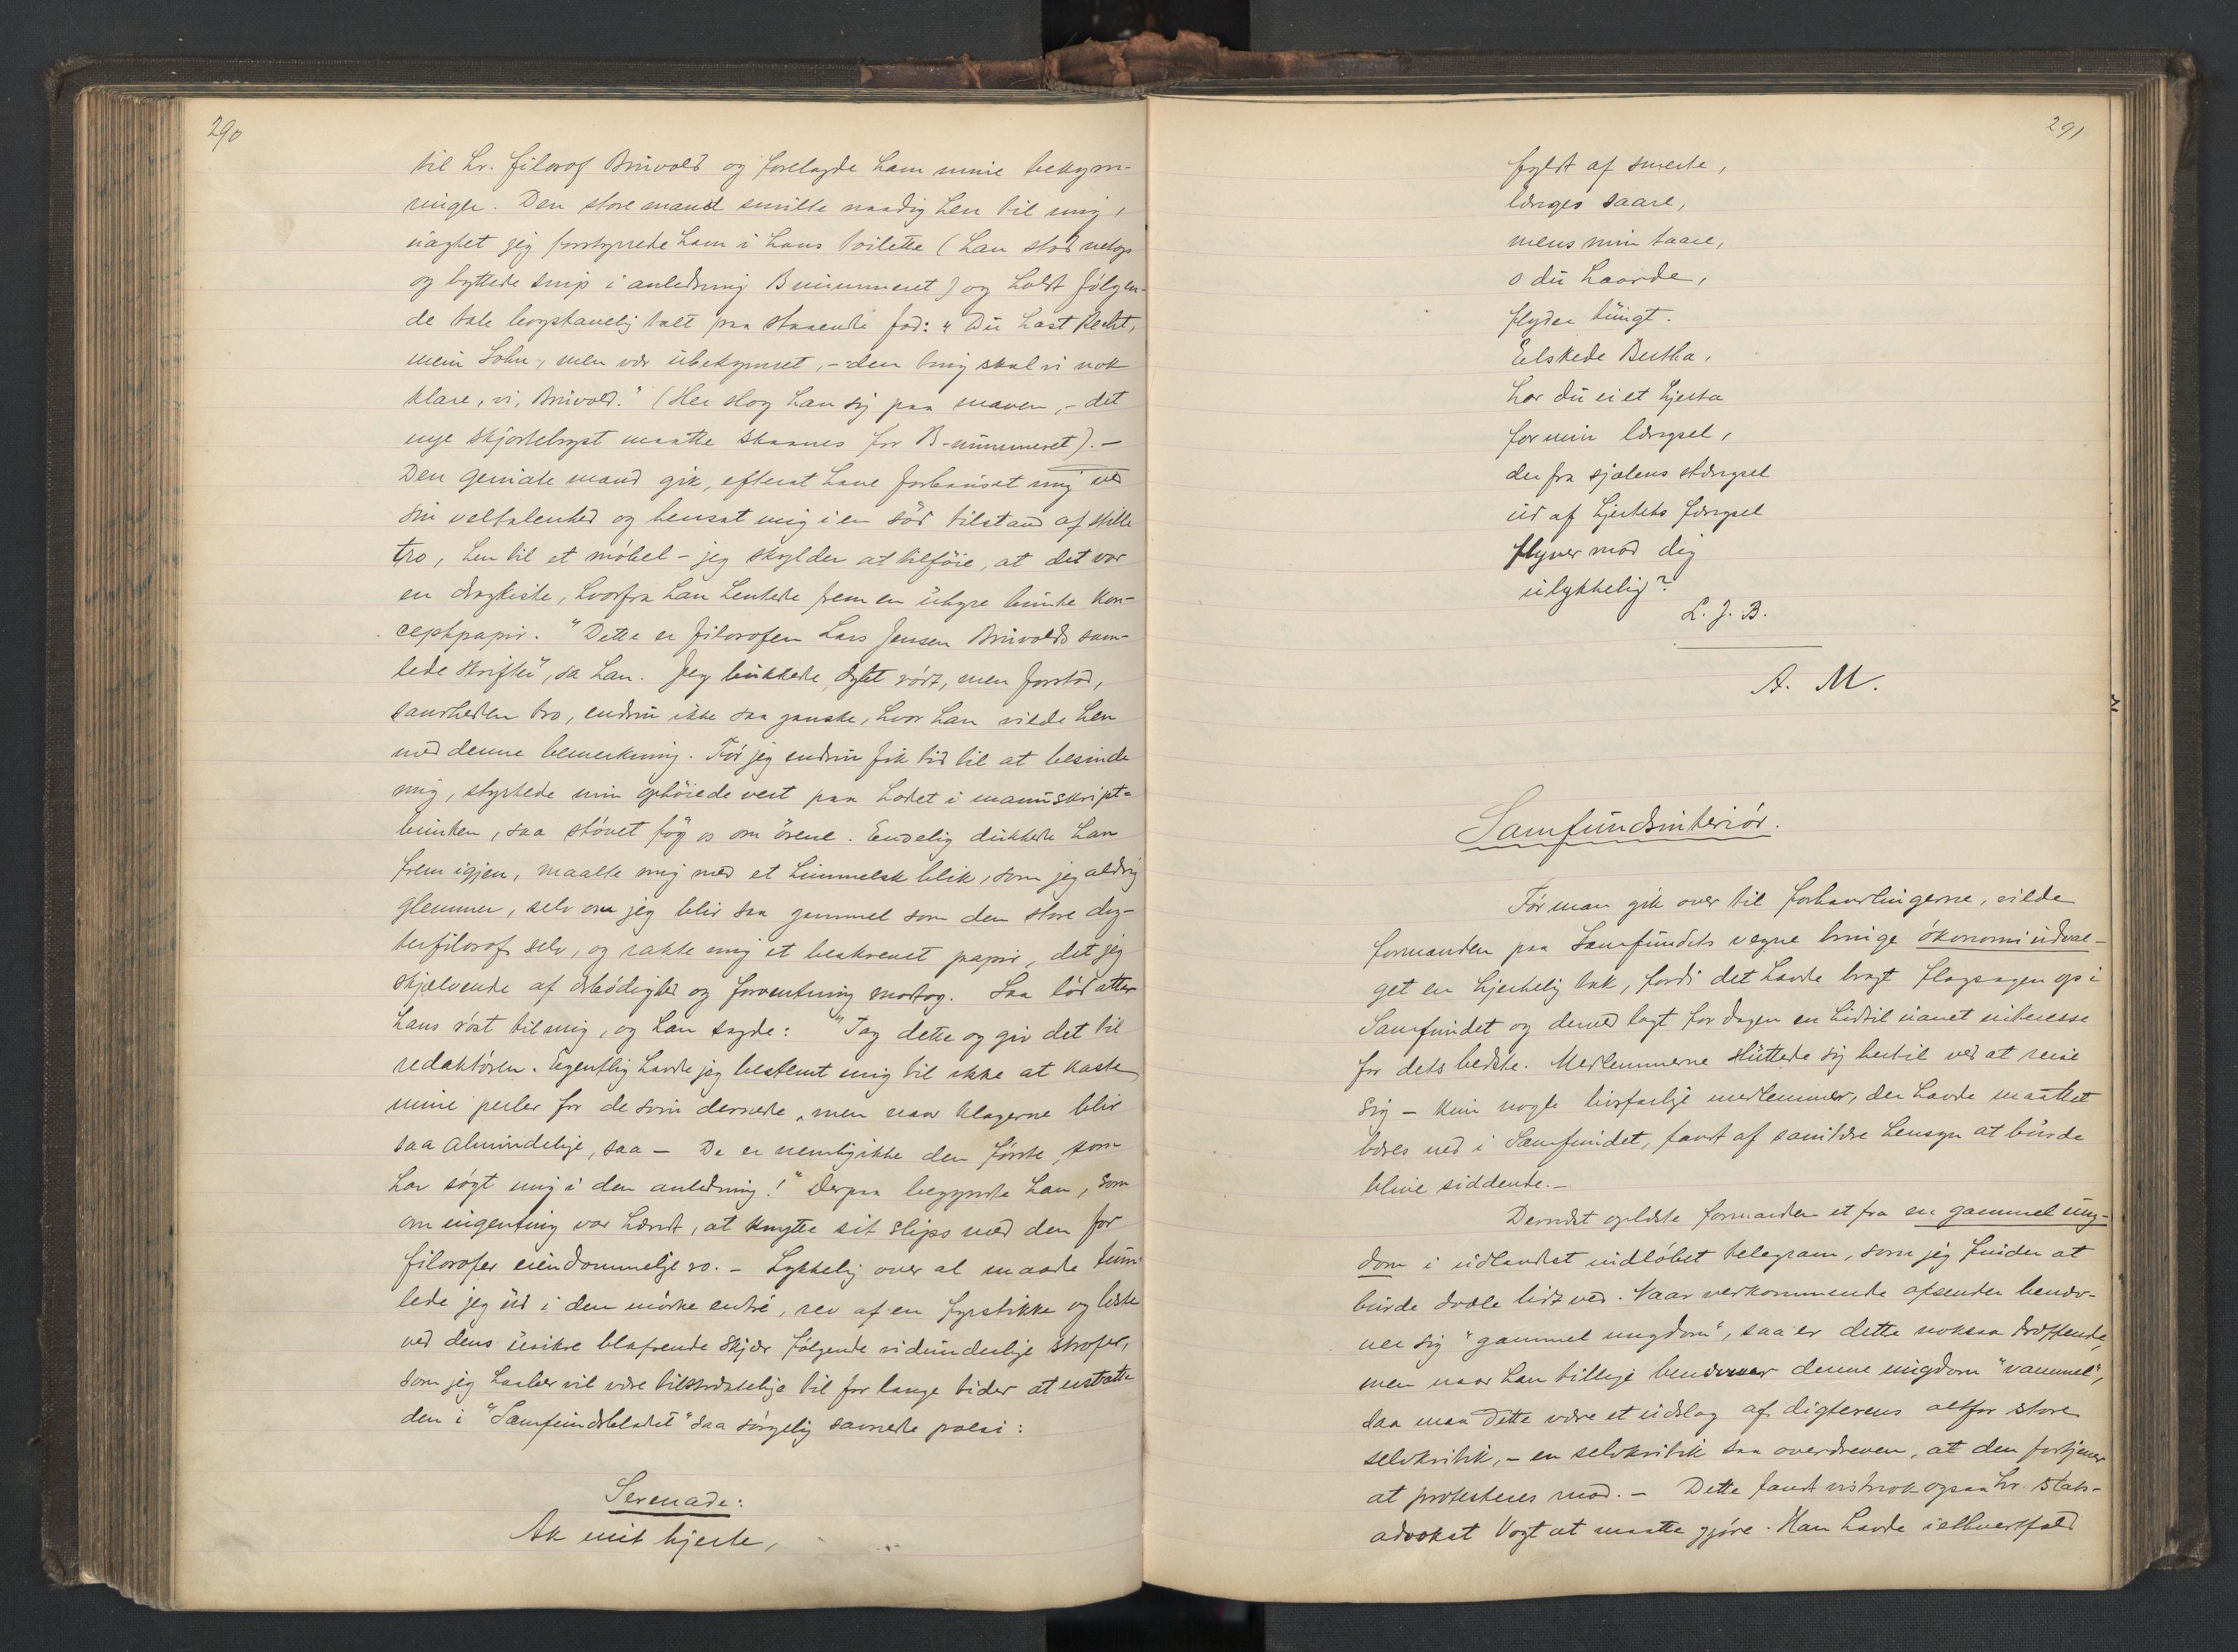 290
til hr. filosof Bruvold og forelagde ham mine bekym-
ringer. Den store mand smilte naadig hen til mig,
uagtet jeg forstyrrede ham i hans toilette (han stod netop
og byttede snip i anledning B nummeret) og holdt følgen-
de tale bogstavelig talt paa staaende fod: "Du hast Recht,
mein Sohn, men vær ubekymret, - den ting skal vi nok
klare, vi, Bruvold." (Her slog han sig paa maven, - det
nye skjortebryst maatte skaanes for B-nummeret). -
Den geniale mand gik, efterat have forbauset mig ved
sin veltalenhed og hensat mig i en sød tilstand af stille
tro, hen til et møbel - jeg skylder at tilføie, at det var
en dragkiste, hvorfra han hentede frem en uhyre bunke kon-
ceptpapir. "Dette er filosofen Lars Jensen Bruvolds sam-
lede skrifter", sa han. Jeg bukkede, dybt rørt, men forstod,
sandheden tro, endnu ikke saa ganske, hvor han vilde hen
med denne bemerkning. Før jeg endnu fik tid til at besinde
mig, styrtede min ophøiede vert paa hodet i manuskript-
bunken, saa støvet føg os om ørene. Endelig dukkede han
frem igjen, maalte mig med et himmelsk blik, som jeg aldrig
glemmer, selv om jeg blir saa gammel som den store dig-
terfilosof selv, og rakte mig et beskrevet papir, det jeg
skjælvende af ærbødighed og forventning modtog. Saa lød atter
hans røst til mig, og han sagde: "Tag dette og giv det til
redaktøren. Egentlig havde jeg bestemt mig til ikke at kaste
mine perler for de svin dernede, men naar klagerne blir
saa almindelige, saa - De er nemlig ikke den første, som
har søgt mig i den anledning!" Derpaa begyndte han, som
om ingenting var hændt, at knytte sit slips med den for
filosofer eiendommelige ro. - Lykkelig over al maade tum-
lede jeg ud i den mørke entré, rev af en fyrstikke og læste
ved dens usikre blafrende skjær følgende vidunderlige strofer,
som jeg haaber vil være tilstrækkelige til for lange tider at erstatte
den i "Samfundsbladet" saa sørgelig savnede poesi:
Serenade:
Ak mit hjerte,
291
fyldt af smerte,
længes saare,
mens min taare,
o du haarde,
flyder tungt.
Elskede Bertha,
har du ei et hjerta
for min længsel,
der fra sjælens stængsel
ud af hjertets fængsel
flyver mod dig
ulykkelig?
L. J. B.
A. M.
Samfundsinteriør.
Før man gik over til forhandlingerne, vilde
formanden paa Samfundets vegne bringe økonomiudval-
get en hjertelig tak, fordi det havde bragt flagsagen op i
Samfundet og derved lagt for dagen en hidtil uanet interesse
for dets bedste. Medlemmerne sluttede sig hertil ved at reise
sig - kun nogle livsfarlige medlemmer, der havde maattet
bæres ned i Samfundet, fandt af sanitære hensyn at burde
blive siddende. -
Dernæst oplæste formanden et fra en gammel ung-
dom i udlandet indløbet telegram, som jeg finder at
burde dvæle lidt ved. Naar vedkommende afsender benæv-
ner sig "gammel ungdom", saa er dette noksaa træffende,
men naar han tillige benævner denne ungdom "vammel",
saa maa dette være et udslag af digterens altfor store
selvkritik, - en selvkritik saa overdreven, at den fortjener
at protesteres mod. - Dette fandt nistnok ogsaa hr. stats-
advokat Vogt at maatte gjøre. Han havde ialhvertfald